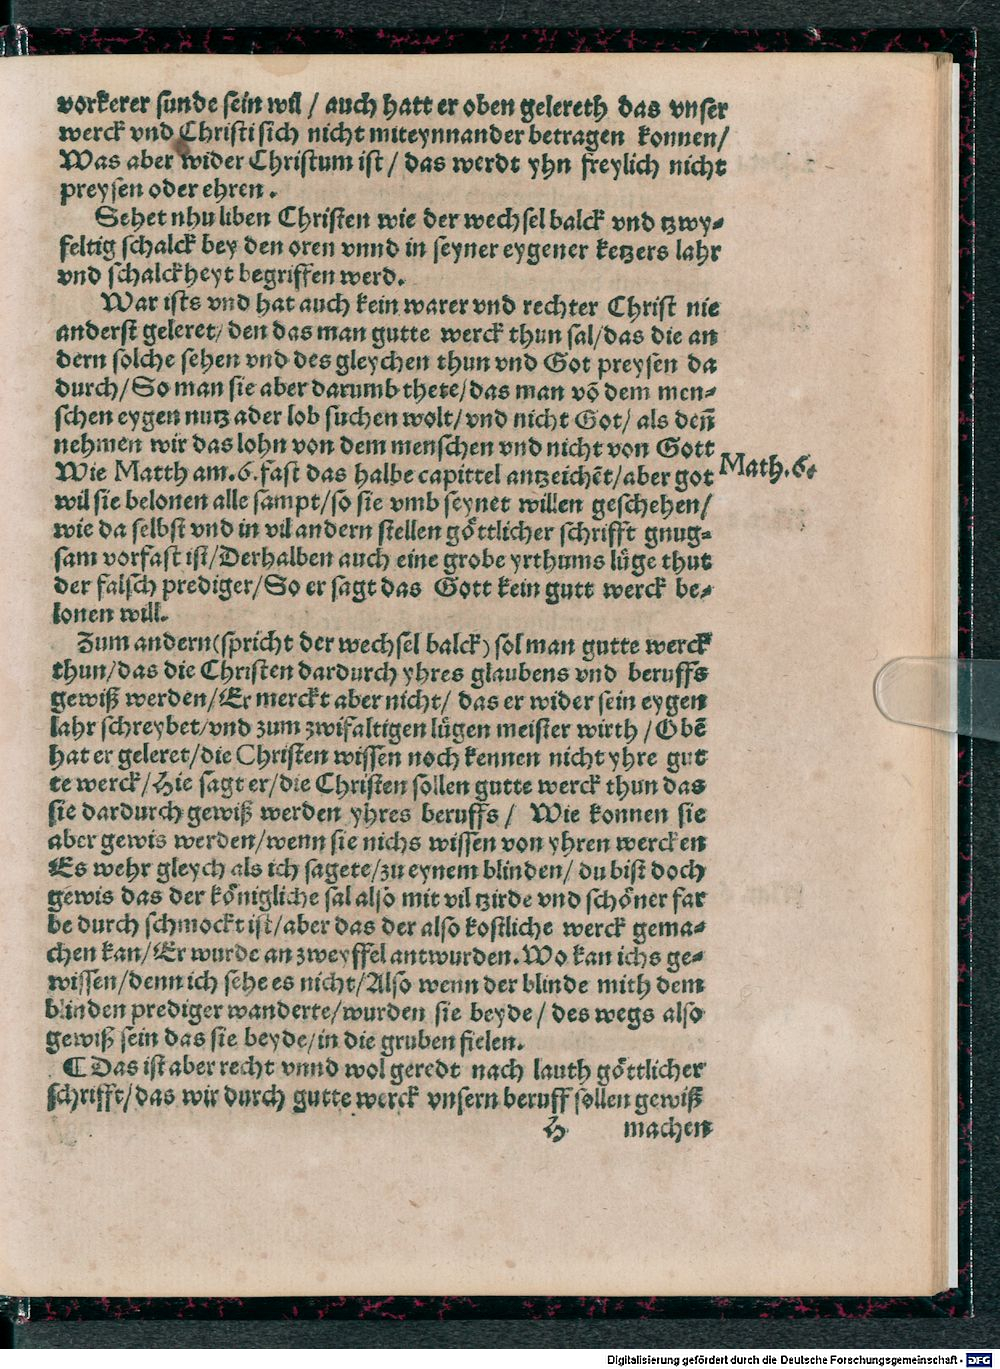 vorkerer sunde sein wil / auch hatt er oben gelereth das vnser
werck vnd Christi sich nicht miteynnander betragen konnen/
Was aber wider Christum ist / das werdt yhn freylich nicht
preysen oder ehren.
Sehet nhu liben Christen wie der wechsel balck vnd tzwy⸗
feltig schalck bey den oren vnnd in seyner eygener ketzers lahr
vnd schalckheyt begriffen werd.
War ists vnd hat auch kein warer vnd rechter Christ nie
anderst geleret/ den das man gutte werck thun sal/das die an
dern solche sehen vnd des gleychen thun vnd Got preysen da
durch/So man sie aber darumb thete/das man võ dem men⸗
schen eygen nutz ader lob suchen wolt/vnd nicht Got/ als deñ
nehmen wir das lohn von dem menschen vnd nicht von Gott
Wie Matth am.6.fast das halbe capittel antzeichẽt/aber got
Math.6.
wil sie belonen alle sampt/so sie vmb seynet willen geschehen/
wie da selbst vnd in vil andern stellen göttlicher schrifft gnug⸗
sam vorfast ist/Derhalben auch eine grobe yrthums lüge thut
der falsch prediger/So er sagt das Gott kein gutt werck be⸗
lonen will.
Zum andern(spricht der wechsel balck) sol man gutte werck
thun/das die Christen dardurch yhres glaubens vnd beruffs
gewiß werden/Er merckt aber nicht/ das er wider sein eygen
lahr schreybet/vnd zum zwifaltigen lügen meister wirth /Obẽ
hat er geleret/die Christen wissen noch kennen nicht yhre gut
te werck/Hie sagt er/die Christen sollen gutte werck thun das
sie dardurch gewiß werden yhres beruffs / Wie konnen sie
aber gewis werden/wenn sie nichs wissen von yhren wercken
Es wehr gleych als ich sagete/zu eynem blinden/ du bist doch
gewis das der königliche sal also mit vil tzirde vnd schöner far
be durch schmockt ist/aber das der also kostliche werck gema⸗
chen kan/Er wurde an zweyffel antwurden.Wo kan ichs ge⸗
wissen/denn ich sehe es nicht/Also wenn der blinde mith dem
blinden prediger wanderte/wurden sie beyde / des wegs also
gewiß sein das sie beyde/in die gruben fielen.
¶ Das ist aber recht vnnd wol geredt nach lauth göttlicher
schrifft/das wir durch gutte werck vnsern beruff sollen gewiß
H machen
Digitalisierung gefördert durch die Deutsche Forschungsgemeinschaft - DFG